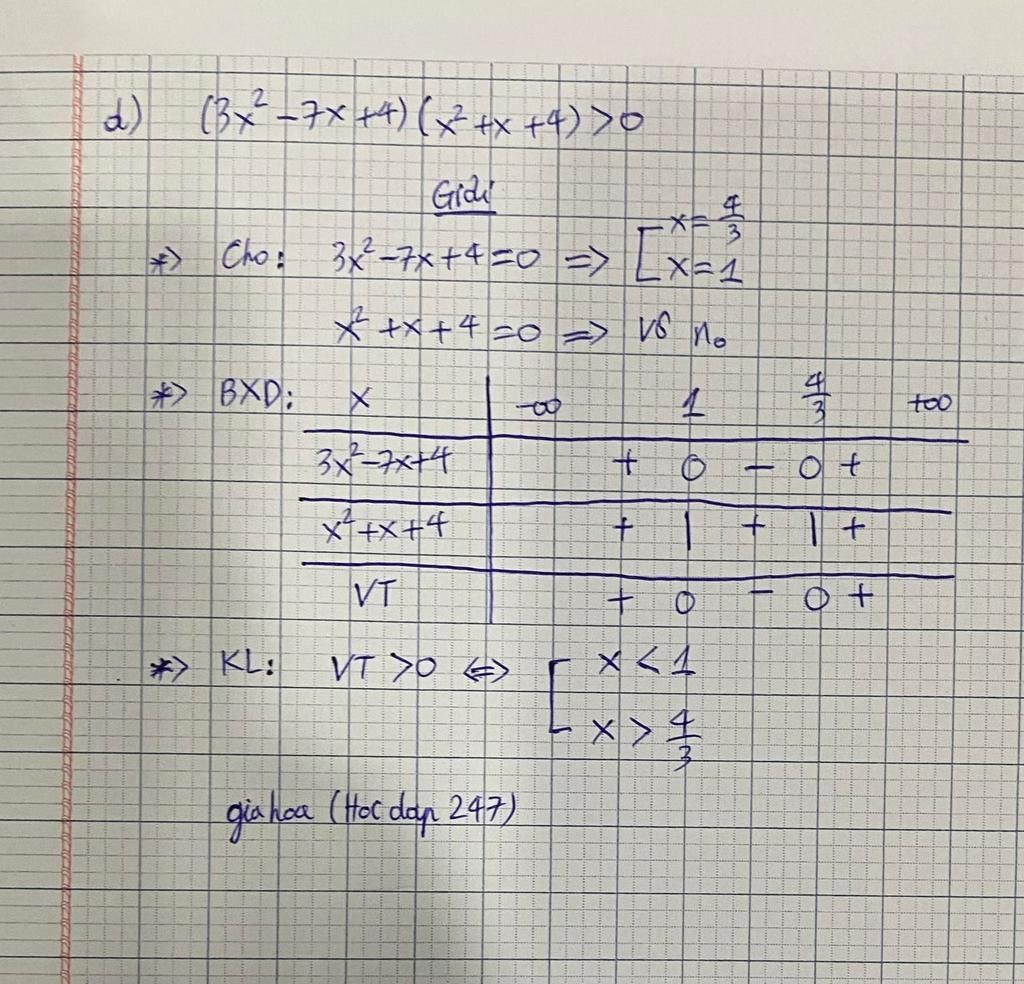 d) (3x² - 7x + 4)(x² + x + 4) > 0
Giải
*> Cho: 3x² - 7x + 4 = 0 => [ x = 4/3
x = 1
x² + x + 4 = 0 => Vô no
*> BXD: x | -∞ 1 4/3 +∞
3x² - 7x + 4 | + 0 - 0 +
x² + x + 4 | + | + | +
VT | + 0 - 0 +
*> KL: VT > 0 <=> [ x < 1
x > 4/3
giahoa (Hoc dap 247)